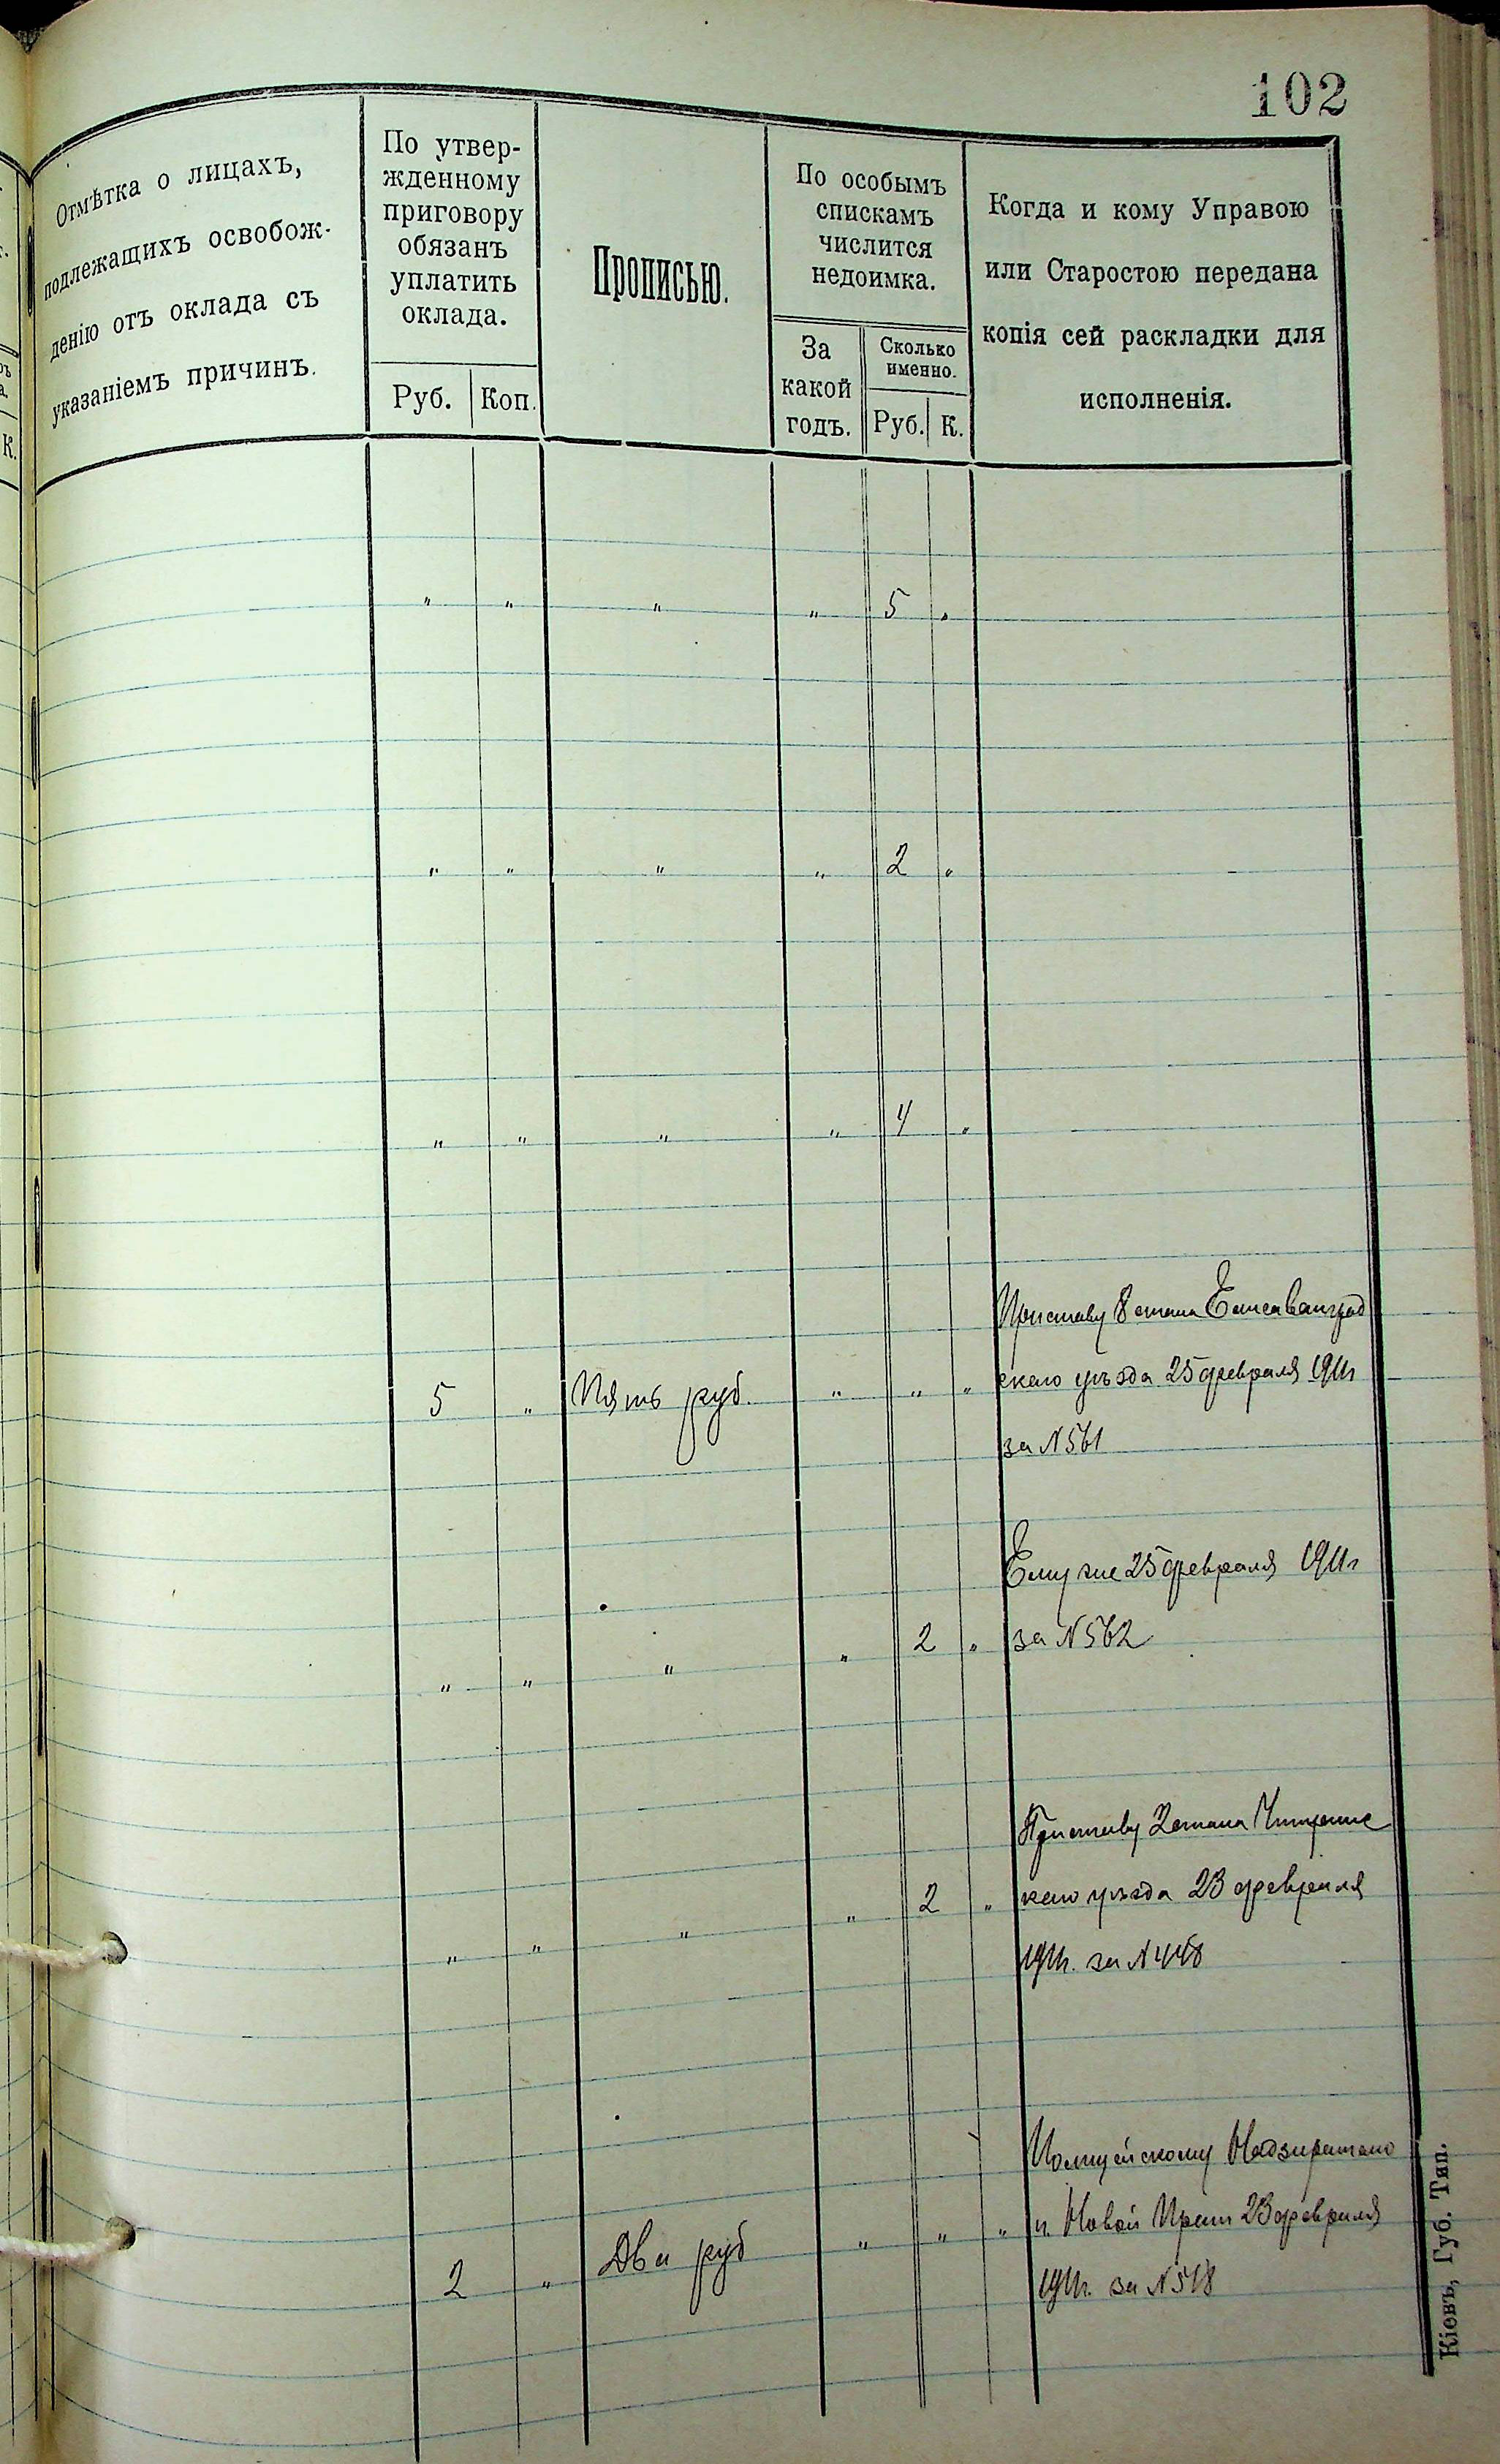 102
Отмѣтка о лицахъ,
подлежащихъ освобож-
денію отъ оклада съ
указаніемъ причинъ.
По утвер-
жденному
приговору
обязанъ
уплатить
оклада.
Руб.
Коп.
Прописью.
По особымъ
спискамъ
числится
недоимка.
За
какой
годъ.
Сколько
именно.
Руб.
К.
Когда и кому Управою
или Старостою передана
копія сей раскладки для
исполненія.
К.
" " " " 5 "
" " " " 2 "
" " " " 4 "
Приставу 8 стана Елисаветград
скаго уѣзда 25 февраля 1911г
5 " Пять руб. " " "
за N 561
Ему же 25 февраля 1911г
" " " " 2 " за N 562
Приставу 2 стана Чигиринс
" " " " 2 " каго уѣзда 23 февраля
1911г. за N 448
Полицейскому Надзирателю
2 " Два руб " " " п. Новой Праги 23 февраля
1911г. за N 518
Кіевъ, Губ. Тип.